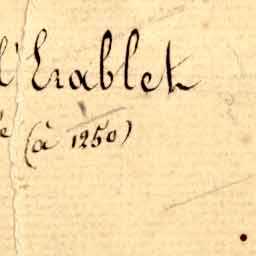 l'Erablet
e (à 1250)